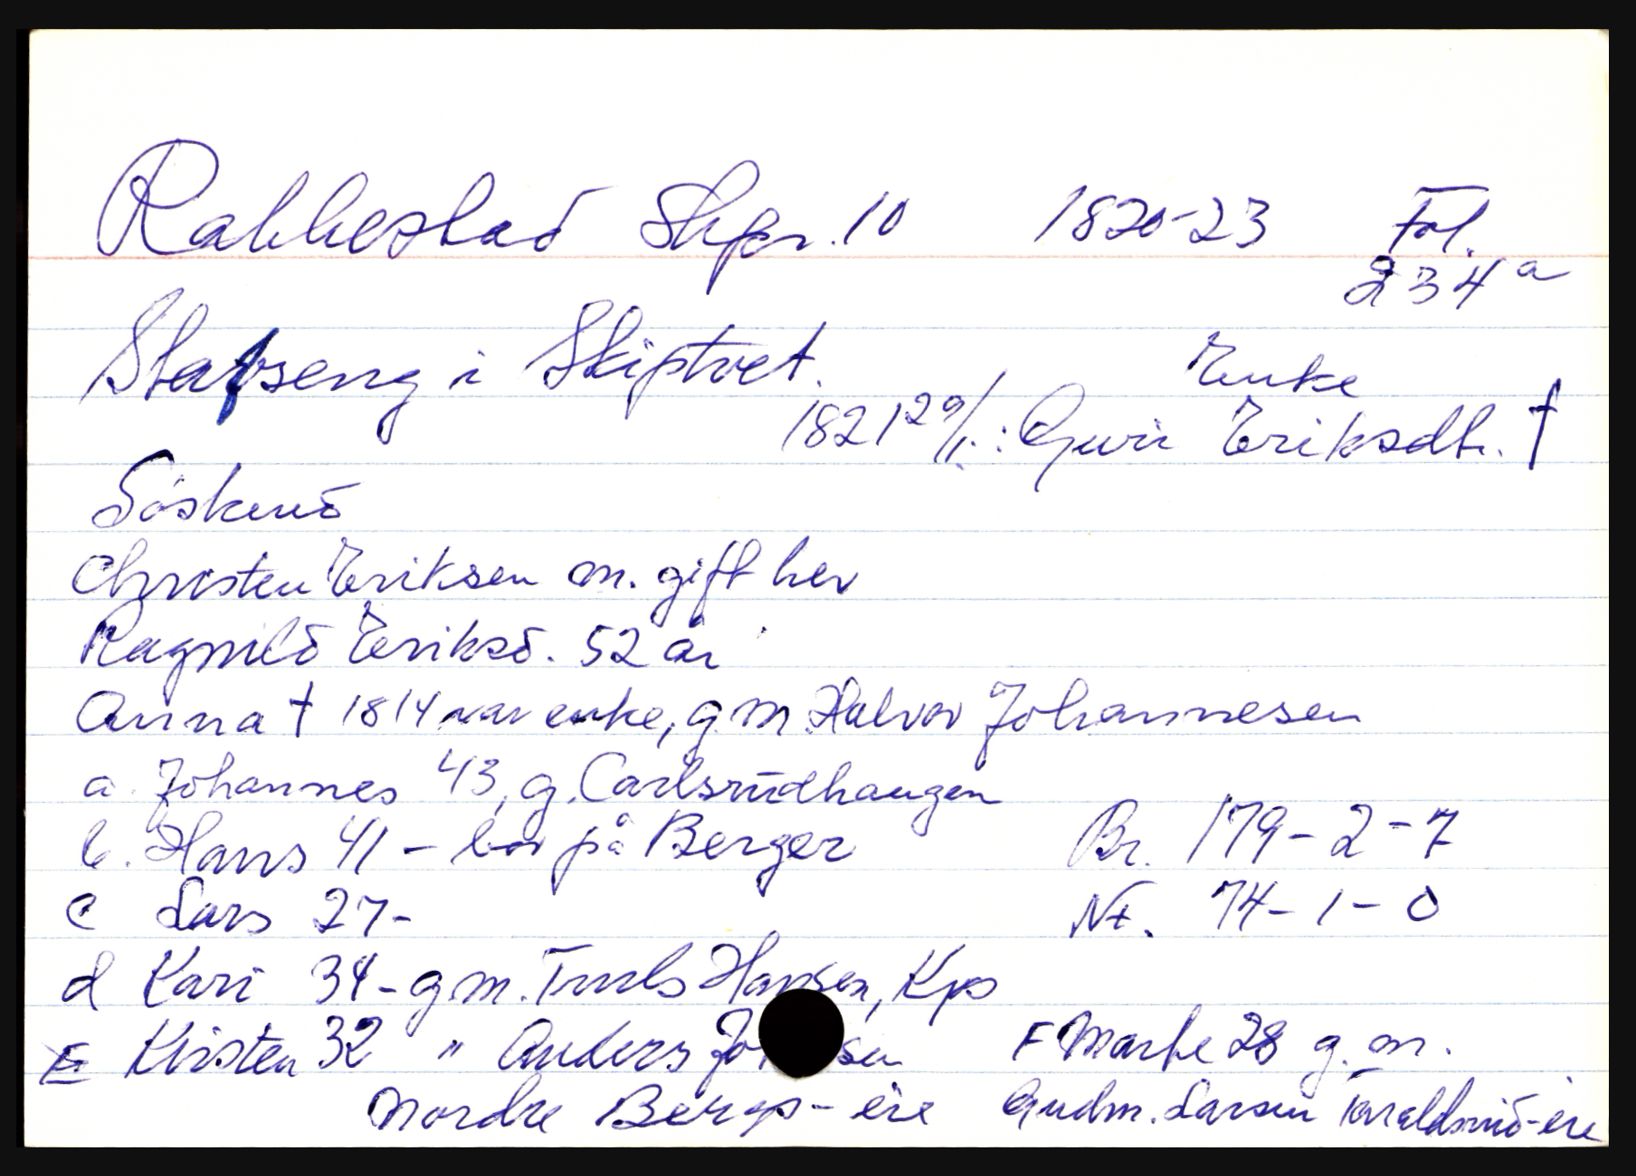 Rakkestad Skpr. 10 1820-23 Fol. 234 a
Stafseng i Skiptvet.
Enke
1821 29/1 : Guri Eriksdtr. †
Söskend
Christen Eriksen m. gift her
Ragnild Eriksd. 52 år
Anna † 1814 var enke, g m. Halvor Johannesen
a. Johannes 43, g. Carlsrudhaugen
b. Hans 41 - bor på Berger Br. 179-2-7
c Lars 27- Nt. 74-1-0
d Kari 34- g m. Truls Hansen, Kps
E Kirsten 32 " Anders sen F Marte 28 g. m.
Nordre Berge-eie Gudm. Larsen Taraldsrud-eie